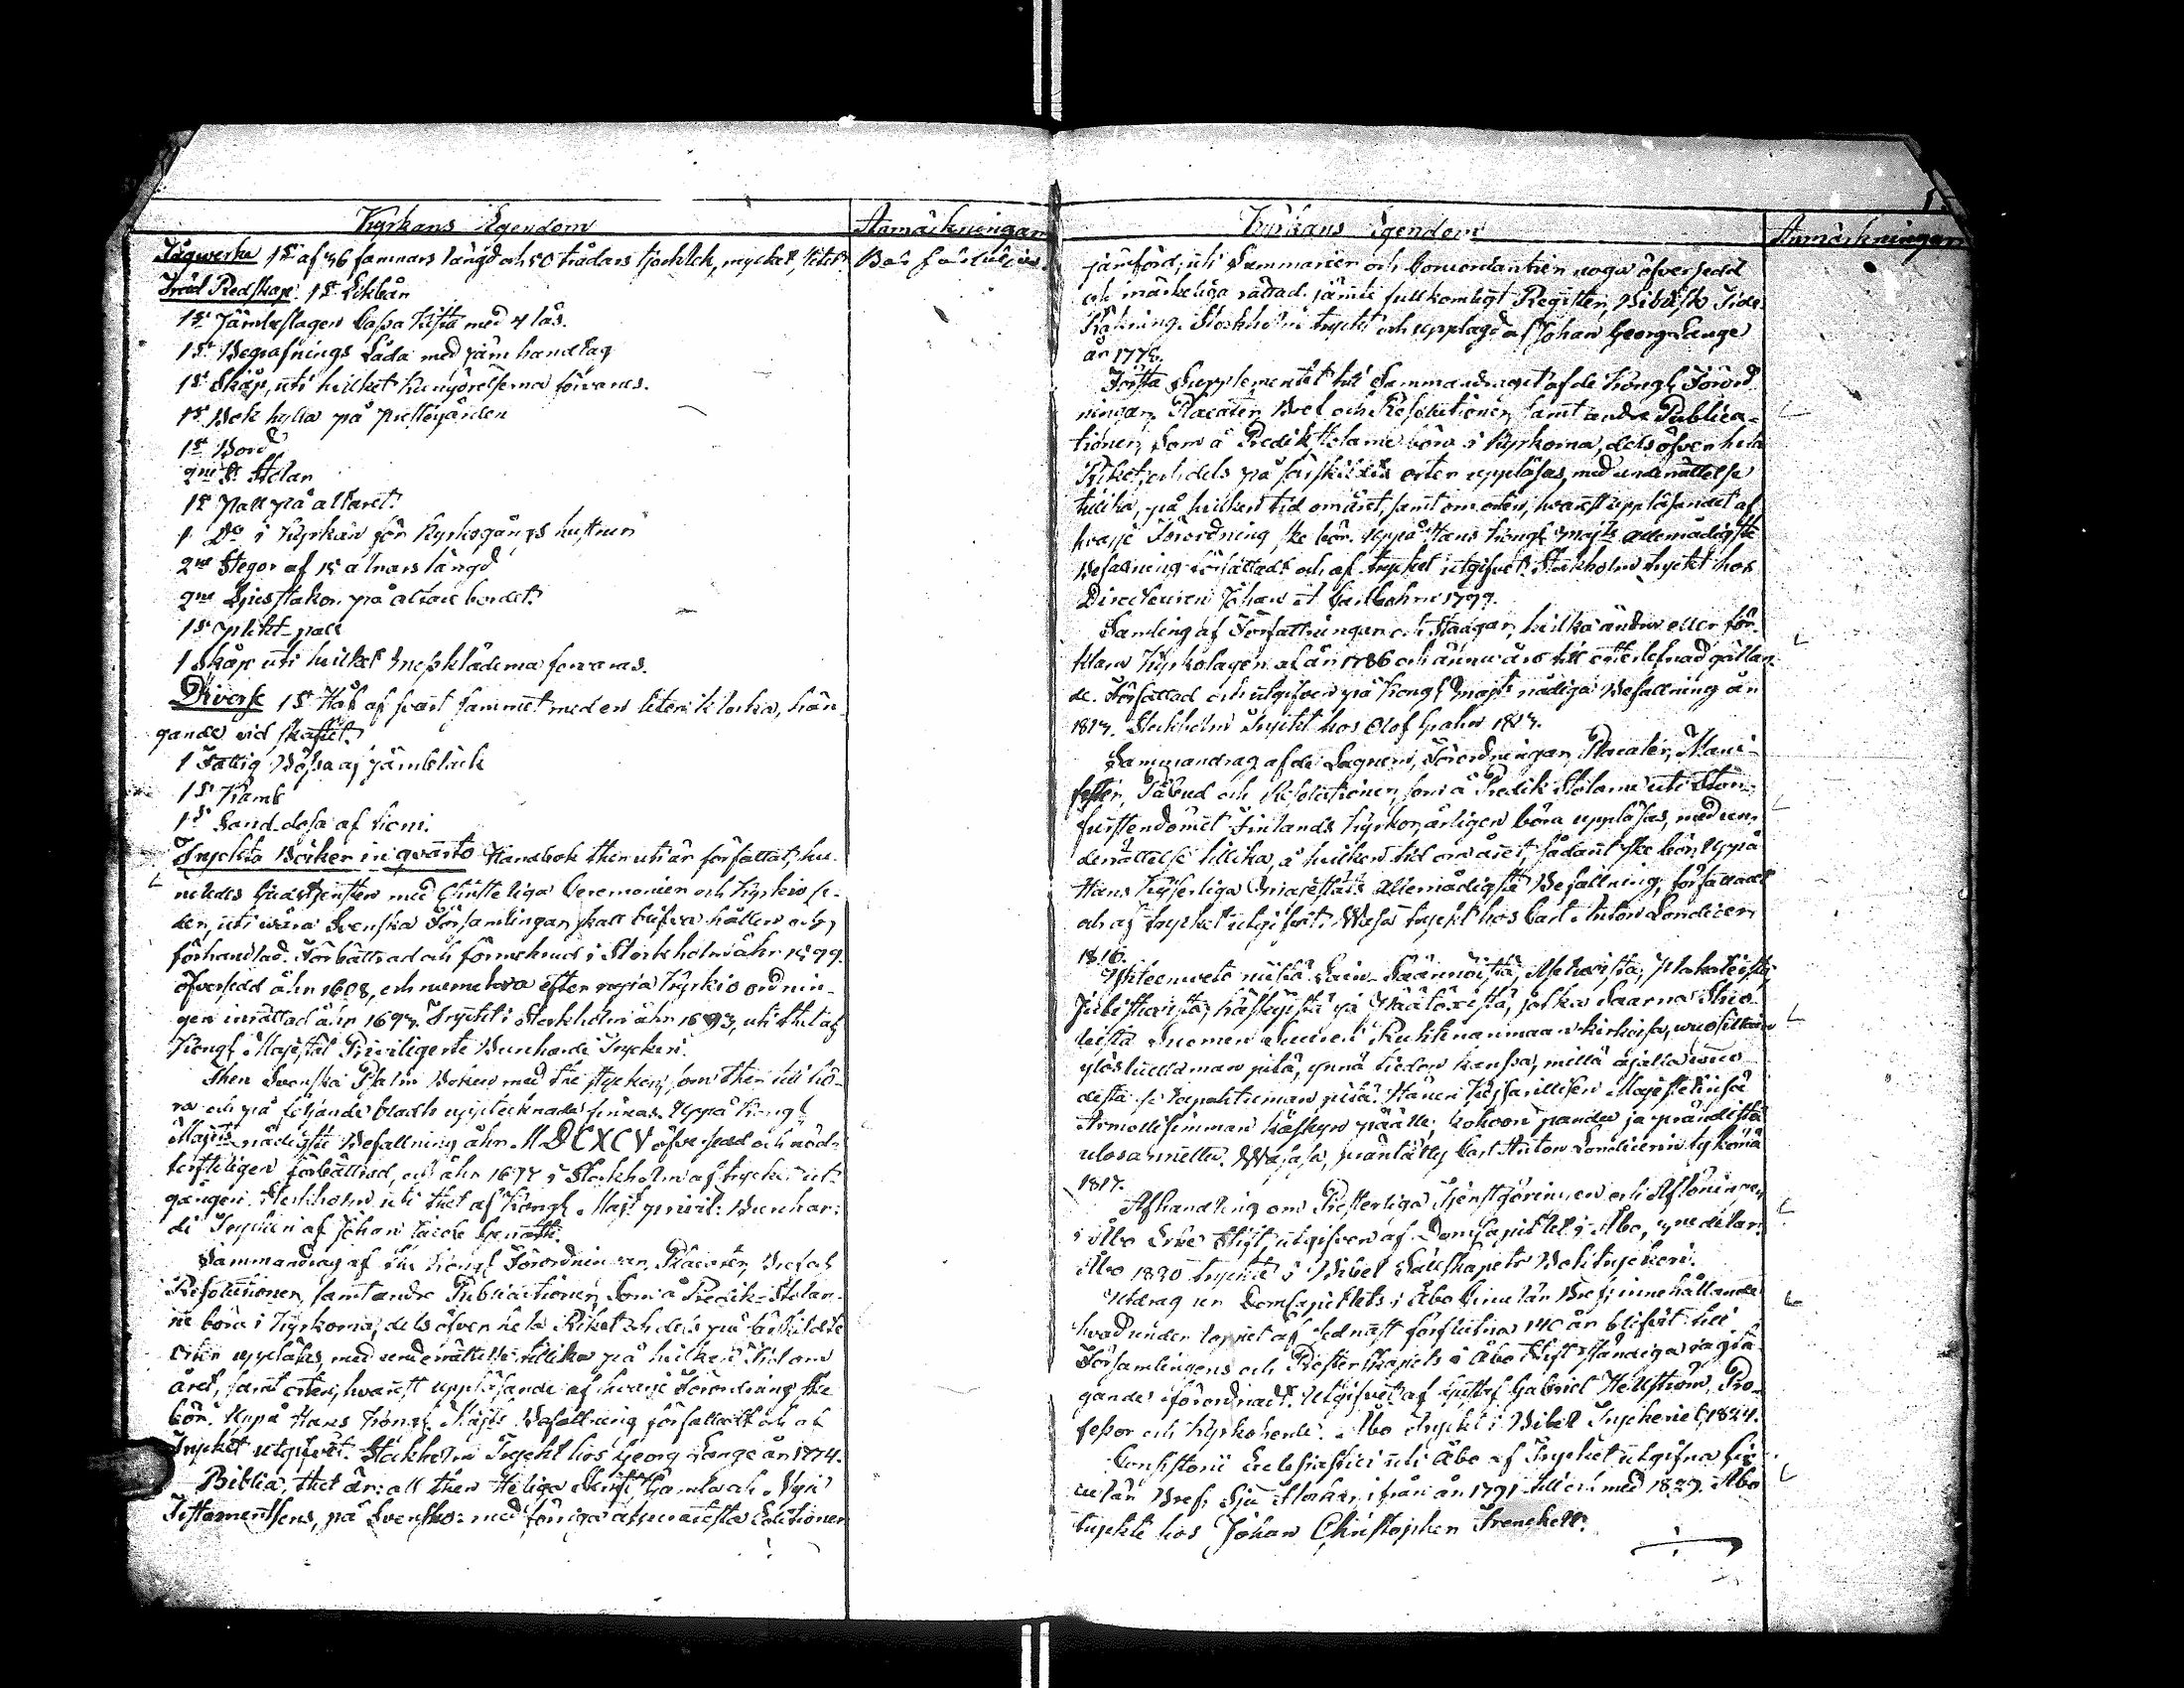 Kyrkans Egendom
Anmärkningar
Tågwerke 1 st af 36 famnars längd och 50 trådars tjocklek, mycket slitet.
Träd Redskap 1 st Likbår
1 st Järnbeslagen Cassa Kista med 4 lås.
1 st Begrafnings Låda med järn handtag
1 st Skåp, uti hvilket Kungörelserna förvaras.
1 st Bok hylla på prestegården
1 st Bord
2ne st Stolar
1 st Pall på altaret.
1 Do i Kyrkan för Kyrkogångs hustrur
2ne Stegor af 15 alnars längd
2ne Ljusstakar på altare bordet.
1 st plikt-pall
1 Skåp uti hvilket Messkläderna forvaras.
Diverse 1 st Håf af svart sammet med en liten klocka, hän-
gande vid skaftet.
1 Fattig Bössa af järnbläck
1 st Kamb
1 st Sand-dosa af
Tryckta Böcker in qvarto Handbok ther uti är författat, hu-
ruledes Gudstjensten med Christeliga Ceremonier och Kyrkio se-
der, uti wåra Svenska Församlingar skall blifva hållen och
förhandlad. Förbättrad och förmehrad i Stockholm åhr 1599.
Öfversedd åhr 1608, och numehra efter nyja Kyrkio ordnin-
gen inrättad åhr 1693. Tryckt i Stockholm åhr 1693, uti thet af
Kongl Majestät Priviligerte Burchardi Tryckeri.
Then Svenska Psalm Boken med the stycker, som ther till hö-
ra och på följande bladh upptecknade finnas. Uppå Kongl
Majts nådigste Befallning åhr MDCXCV öfversedd och nöd-
torfteligen förbättrad, och åhr 1697 i Stockholm af trycket ut-
gången. Stockholm uti thet af Kongl Majt privil: Burchar-
di Tryckeri af Johan Jacob Genath.
Sammandrag af the Kongl Förordningar, Placater, Bref och
Resolutioner, samt andre Publicationer, som å Predik-Stolar-
ne böra i Kyrkorna, dels öfver hela Riket och dels på särskildte
orter uppläsas, med underrättelse tillika på hvilken tid om
året, samt orten, hvarest uppläsande af hvarje Förordning ske
bör. Uppå Hans Kongl Majts Befallning författadt och af
Trycket utgifvet. Stockholm Tryckt hos Georg Lange år 1774.
Biblia, thet är: all then Heliga Skrift Gamla och Nya
Testamentsens, på Svensko: med förriga accurateste Editioner
Kyrkans Egendom
Anmärkningar
jämförd, uti Summarier och Concordantier noga öfversedd
och märkeliga rättad jämte fullkomligt Register, Biblisk Tide
Räkning. Stockholm tryckt och upplagd af Johan Georg Lange
år 1778.
Första Supplementet till Sammandraget af de Kongl. Förord
ningar, Placater, Bref och Resolutioner, samt andre Publica-
tioner, som å Predikstolarne böra i Kyrkorna, dels öfver hela
Riket, och dels på särskildte orter uppläsas, med underrättelse
tillika, på hvilken tid om året, samt om orten, hvarest uppläsandet af
hvarje Förordning ske bör. Uppå Hans Kongl. Majts allernådigste
Befallning författadt och af trycket utgifvet. Stockholm tryckt hos
Directeuren Johan A. Carlbohm 1799.
Samling af Författningar och Stadgar, hvilka ändra eller för-
klara Kyrkolagen af år 1686 och ännu äro till efterlefnad gällan-
de. Författad och utgifven på Kongl Majts nådiga Befallning år
1813. Stockholm Tryckt hos Olof Grahn 1813.
Sammandrag af de Lagrum, Förordningar, Placater, Mani-
fester, Påbud och Resolutioner, som å Predik Stolarne uti Stor-
furstendömet Finlands Kyrkor, årligen böra uppläsas, med un-
derrättelse tillika, å hvilken tid om året, sådant ske bör. Uppå
Hans Kejserliga Majestäts Allernådigste Befallning, författadt
och af trycket utgifvet. Wasa tryckt hos Carl Anton Londicer,
1816.
Yhteenweto niistä Lain-Säännöistä, Asetuxista, Plakateista,
Julistuxista, Käskyistä ja Päätöxistä, jotka Saarna Stuo-
leista Suomen Suuren Ruhtinanmaan kirkoisa, wuosittain
ylösluettaman pitä, ynnä tiedon kanssa, millä ajalla wuo-
desta se tapahtuman pitä. Hänen Keisarillisen Majestetinsä
Armollisimman käskyn päälle, kokoon pandu ja prändistä
ulosannettu. Wasasa, präntätty Carl Anton Londicerin tykönä
1817.
Afhandling om Presterliga Tjenstgöringen och Aflöningen
i Åbo Erke Stift, utgifven af DomCapitlet i Åbo, 3ne delar.
Åbo 1830 tryckte i Bibel Sällskapets Boktryckeri.
Utdrag ur DomCapitlets i Åbo Circulär Bref, innehållande
hvad under loppet af sednast förflutna 140 år blifvit till
Församlingens och Presterskapets i Åbo Stift ständiga iagta-
gande förordnadt. Utgifvet af Gustaf Gabriel Hellström, Pro-
fessor och Kyrkoherde. Åbo Tryckt i Bibel Tryckeriet, 1824.
Consistorii Ecclesiastici uti Åbo af Trycket utgifna Cir-
culär Bref, Sju Stockar, ifrån år 1791 till och med 1829. Åbo
tryckte hos Johan Christopher Frenckell.